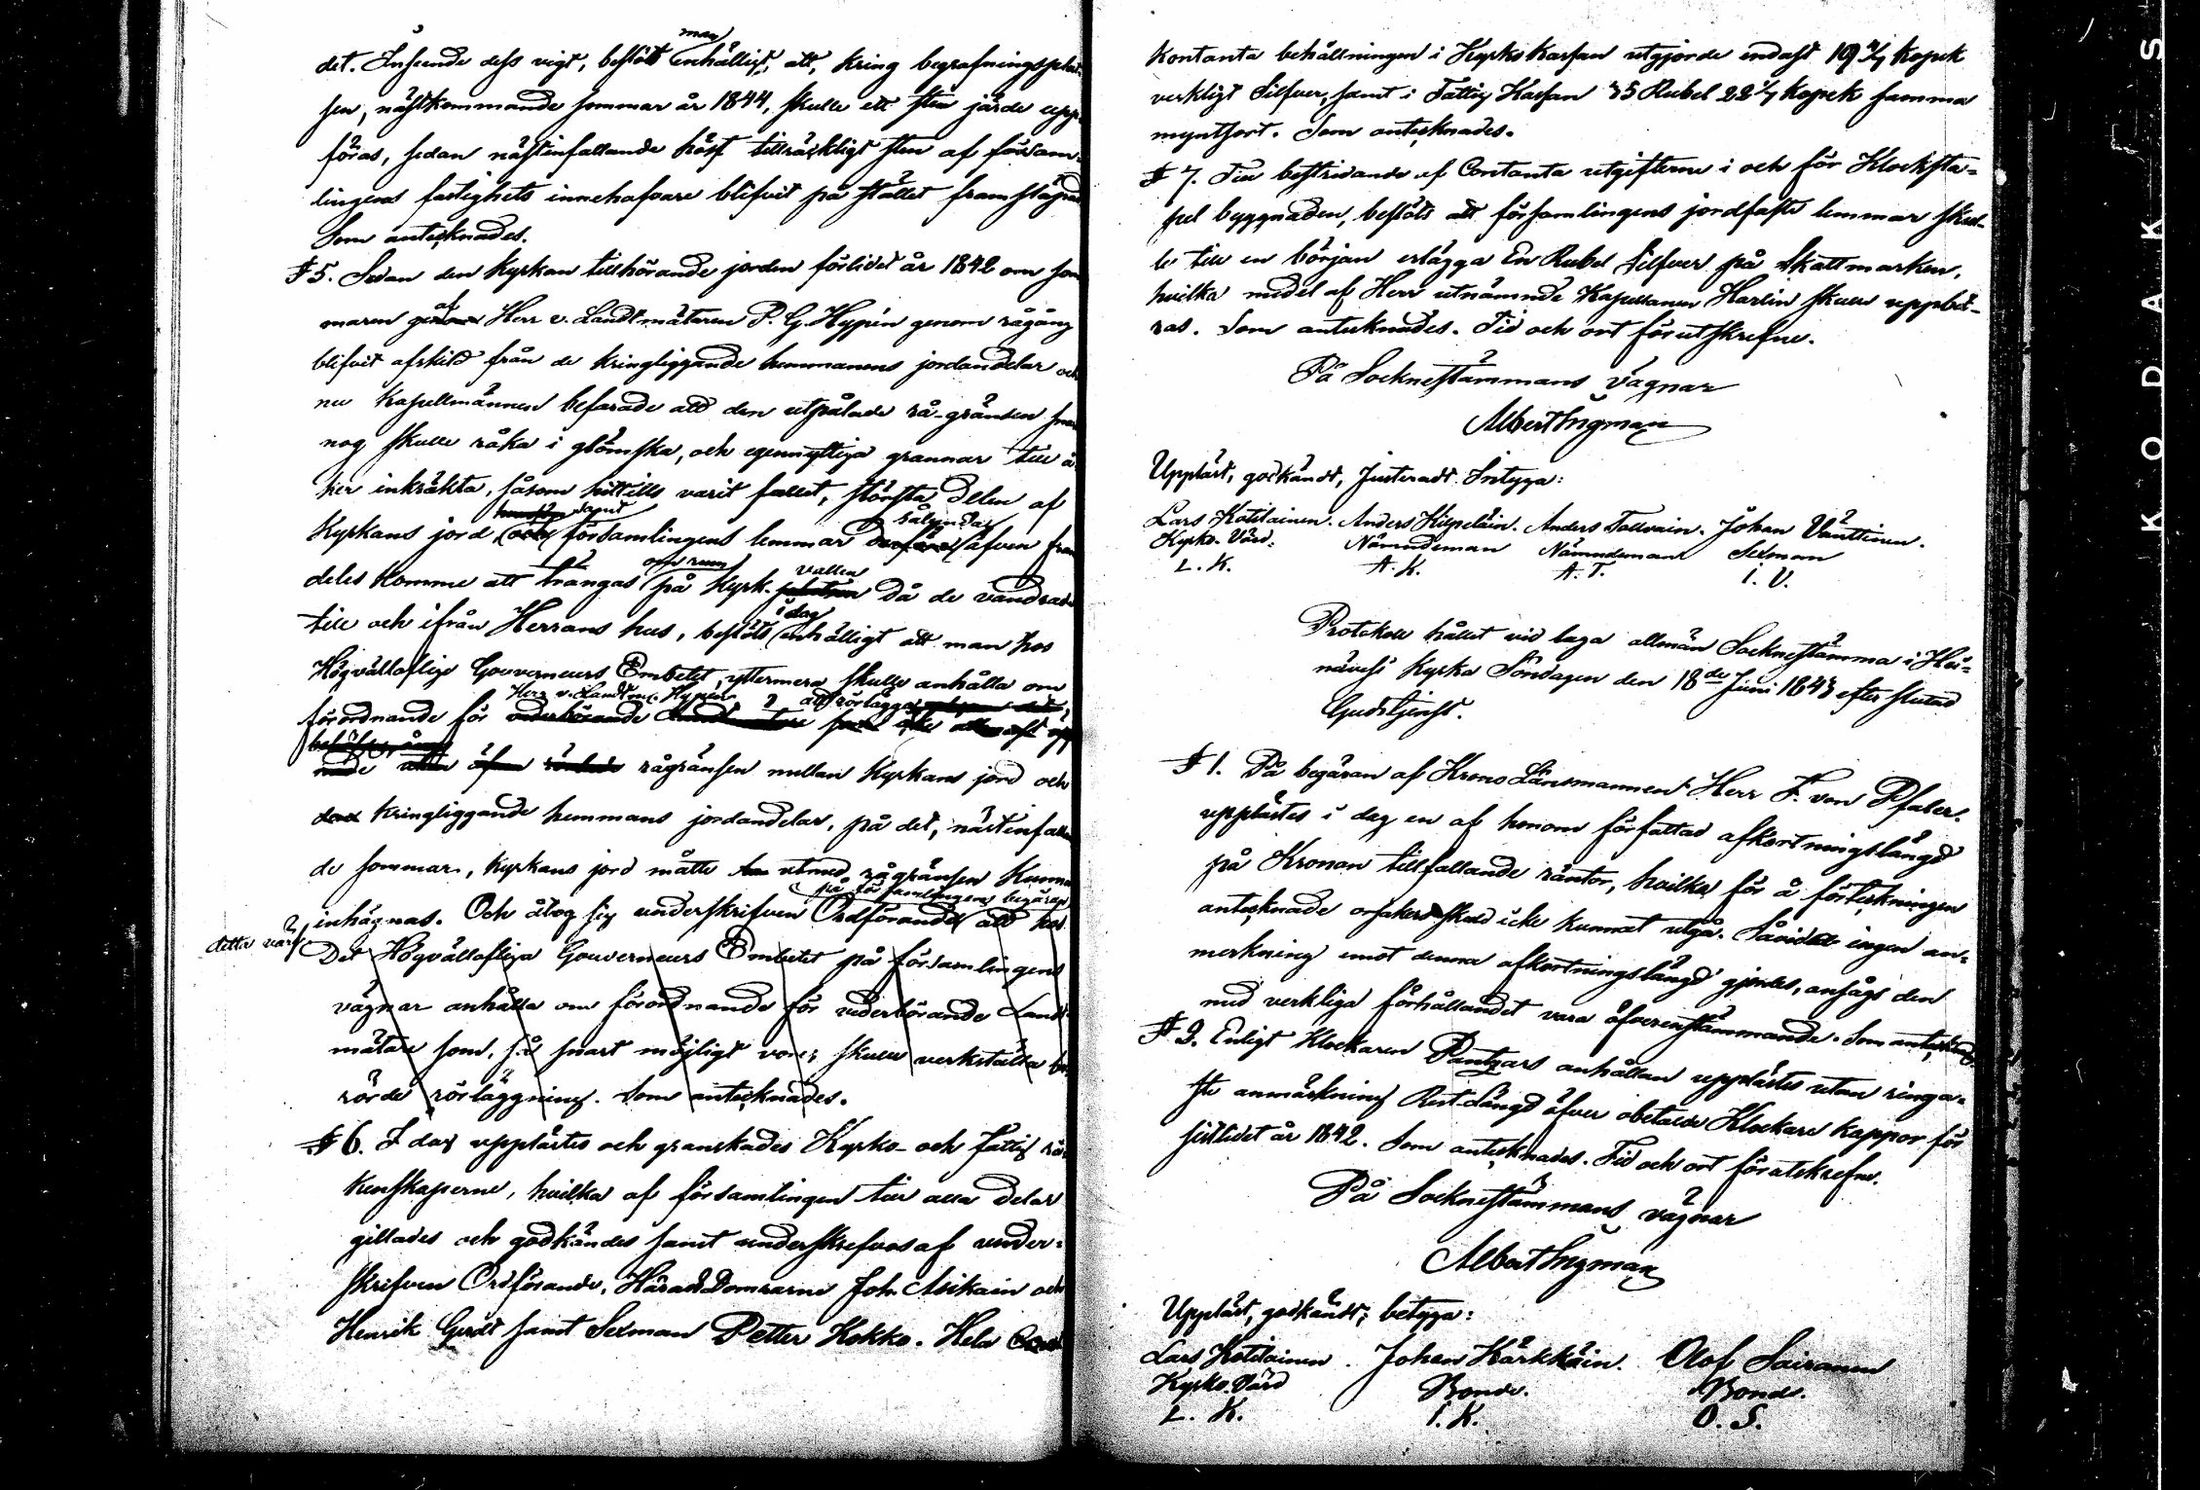 det. Inseende dess vigt, beslöt man enhälligt, att, kring begrafningsplat-
sen, nästkommande sommar år 1844, skulle ett sten järde upp-
föras, sedan nästinfallande höst tillräckligt sten af försam-
lingens fastighets innehafvare blifvit på stället framsläpad
Som antecknades.
§ 5. Sedan den Kyrkan tillhörande jorden förlidet år 1842 om som
maren af Herr v. Landtmätaren P. G. Hypén genom rågång
blifvit afskild från de kringliggande hemmanens jordandelar och
nu Kapellmännen befarade att den utpålade rå-gränsen snart
nog skulle råka i glömska, och egennyttiga grannar till å
her inkräkta, såsom hittills varit fallet, största delen af
Kyrkans jord samt församlingens lemmar äfven fram
deles komme att trängas om rum på Kyrk-vallen då de vandrade
till och ifrån Herrans hus, beslöts i dag enhälligt att man hos
Högvällofliga Gouverneurs Embetet, yttermera skulle anhålla om
förordnande för Herr v. Landtm. Hypén att rörlägga
rågränsen mellan Kyrkans jord och
kringliggande hemmans jordandelar, på det, nästinfallan
de sommar, Kyrkans jord måtte utmed rågränsen kunna
inhägnas. Och åtog sig underskrifven Ordförande på församlingens begäran
detta värf
Det Högvällofliga Gouverneurs Embetet på församlingens
vägnar anhålla om förordnande för vederbörande Land
mätare som, så snart möjligt vore, skulle verkställa be
rörde rörläggning. Som antecknades.
§ 6. I dag upplästes och granskades Kyrko- och Fattig rä-
kenskaperne, hvilka af församlingen till alla delar
gillades och godkändes samt underskrefvos af under-
skrifven Ordförande, Härads Domrarne Joh. Asikain och
Henrik Gerdt samt Sexman Petter Kokko. Hela
Kontanta behållningen i Kyrko Kassan utgjorde endast 19 2/7 Kopek
verkligt Silfver, samt i Fattig Kassan 35 Rubel 22 2/7 Kopek samma
myntsort. Som antecknades.
§ 7. Till bestridande af Contanta utgifterne i och för Klocksta-
pel byggnaden, beslöts att församlingens jordfaste lemmar skul-
le till en början erlägga En Rubel Silfver på Skattmarken,
hvilka medel af Herr utnämnde Kapellanen Harlin skulle uppbä-
ras. Som antecknades. Tid och ort förutskrefne.
På Sockne stämmans vägnar
Albert Ingman
Uppläst, godkändt, Justeradt. Intyga:
Lars Kotilainen. Anders Kilpeläin. Anders Tallvain. Johan Vänttinen.
Kyrko-Värd. Nämndeman Nämndeman Sexman
L. K. A. K. A. T. I. V.
Protokoll hållet vid laga allmän Sockne stämma i Hei-
nävesi Kyrka Söndagen den 18de Juni 1843 efter slutad
Gudstjenst.
§ 1. På begäran af Krono Länsmannen Herr F. von Pfaler.
upplästes i dag en af honom författad afkortningslängd
på Kronan tillfallande räntor, hvilka för å förteckningen
antecknade orsakers skuld icke kunnat utgå. Såvidt ingen an-
merkning emot denna afkortningslängd gjordes, ansågs den
med verkliga förhållandet vara öfverensstämmande. Som antecknades.
§ 2. Enligt Klockaren Pantzars anhållan upplästes utan ringa-
ste anmärkning Rest-Längd öfver obetalde Klockare kappor för
sistlidet år 1842. Som antecknades. Tid och ort förutskrefne.
På Socknestämmans vägnar
Albert Ingman
Uppläst, godkändt; betyga:
Lars Kotilainen. Johan Kärkkäin. Olof Sairanen
Kyrko-Värd Bonde. Bonde.
L. K. I. K. O. S.
KODAK S